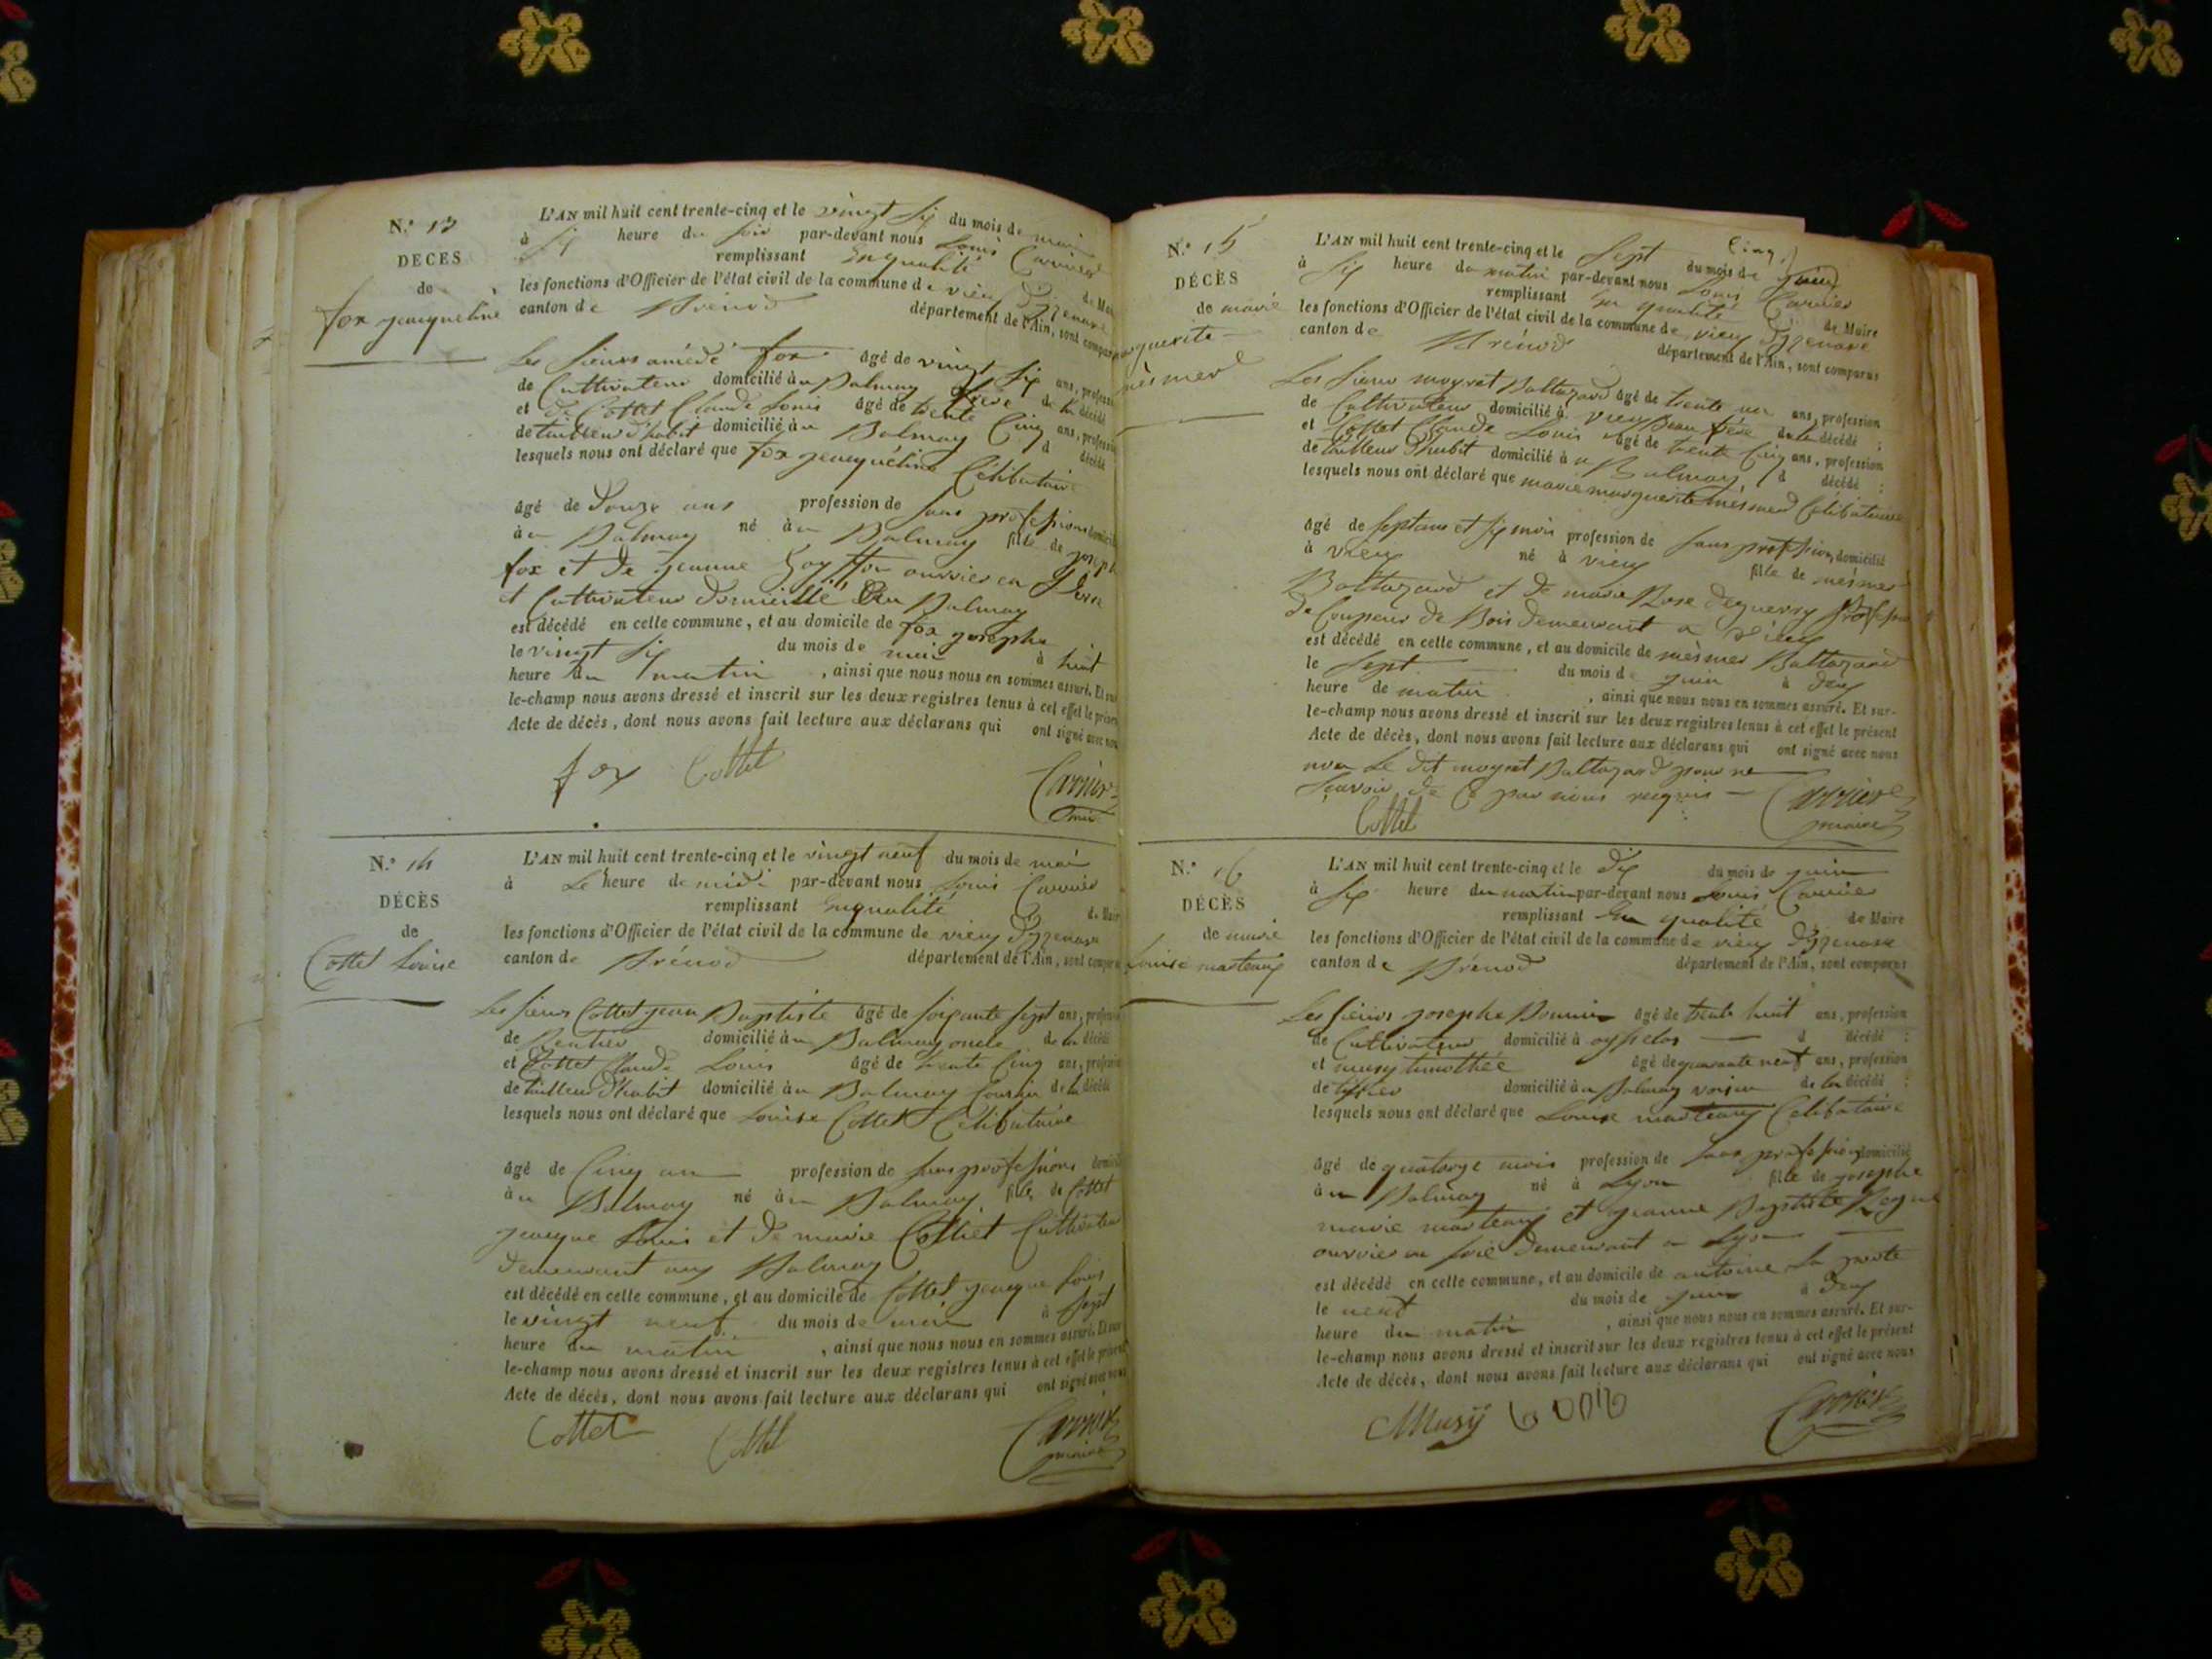 N.° 13
DÉCÈS
de
fox jeacqueline
L'AN mil huit cent trente-cinq et le vingt six du mois de mai
à six heure du soir par-devant nous Louis Carrier
remplissant En qualité de Maire
les fonctions d'Officier de l'état civil de la commune de vieu Dizenave
canton de Brénod département de l'Ain, sont comparus
Les sieurs amédé fox âgé de vingt six ans, profession
de Cultivateur domicilié au Balmay frère de la décédé
et de Cottet Claude Louis âgé de trente Cinq ans, profession
de tailleur d'habit domicilié au Balmay d décédé
lesquels nous ont déclaré que fox jeacquéline Célibataire
âgé de Douze ans profession de sans profession domicilié
au Balmay né au Balmay fille de joseph
fox et de jeanne ouvrier en
et Cultivateur domicillié au Balmay
est décédé en celle commune, et au domicile de fox josephe
le vingt six du mois de mai à huit
heure du matin , ainsi que nous nous en sommes assuré. Et sur-
le-champ nous avons dressé et inscrit sur les deux registres tenus à cet effet le présent
Acte de décès, dont nous avons fait lecture aux déclarans qui ont signé avec nous
fox Cottet Carrier
maire
N.° 14
DÉCÈS
de
Cottet Louise
L'AN mil huit cent trente-cinq et le vingt neuf du mois de mai
à Le heure de midi par-devant nous Louis Carrier
remplissant En qualité de Maire
les fonctions d'Officier de l'état civil de la commune de vieu Dizenave
canton de Brénod département de l'Ain, sont comparus
Les sieurs Cottet jean Baptiste âgé de soixante sept ans, profession
de Rentier domicilié au Balmay oncle de la décédé
et Cottet Claude Louis âgé de trente Cinq ans, profession
de tailleur d'habit domicilié au Balmay Cousin de la décédé
lesquels nous ont déclaré que Louise Cottet Célibataire
âgé de Cinq an profession de sans profession domicilié
au Balmay né au Balmay fille de Cottet
jeacque Louis et de marie Cottet Cultivateur
demeurant au Balmay
est décédé en celle commune, et au domicile de Cottet jeacque Louis
le vingt neuf du mois de mai à sept
heure du matin , ainsi que nous nous en sommes assuré. Et sur-
le-champ nous avons dressé et inscrit sur les deux registres tenus à cet effet le présent
Acte de décès, dont nous avons fait lecture aux déclarans qui ont signé avec nous
Cottet Cottet Carrier
maire
N.° 15
DÉCÈS
de marie
marguerite
mésmer
Cinq
L'AN mil huit cent trente-cinq et le sept du mois de juin
à six heure du matin par-devant nous Louis Carrier
remplissant En qualité de Maire
les fonctions d'Officier de l'état civil de la commune de vieu Dizenave
canton de Brénod département de l'Ain, sont comparus
Les sieurs moyret Baltazard âgé de trente un ans, profession
de Cultivateur domicilié à vieu Beau frère de la décédé ;
et Cottet Claude Louis âgé de trente Cinq ans, profession
de tailleur d'habit domicilié au Balmay d décédé ;
lesquels nous ont déclaré que marie marguerite mésmer Célibataire
âgé de sept ans et six mois profession de sans profession, domicilié
à vieu né à vieu fille de mésmer
Baltazard et de marie Rose deguerry profession
de Coupeur de Bois demeurant a vieu
est décédé en celle commune, et au domicile de mésmer Baltazard
le sept du mois de juin à deux
heure de matin , ainsi que nous nous en sommes assuré. Et sur-
le-champ nous avons dressé et inscrit sur les deux registres tenus à cet effet le présent
Acte de décès, dont nous avons fait lecture aux déclarans qui ont signé avec nous
non Le dit moyret Baltazard pour ne
scavoir de Ce par nous requis
Cottet Carrier
maire
N.° 16
DÉCÈS
de marie
Louise marteaux
L'AN mil huit cent trente-cinq et le dix du mois de juin
à six heure du matin par-devant nous Louis Carrier
remplissant En qualité de Maire
les fonctions d'Officier de l'état civil de la commune de vieu Dizenave
canton de Brénod département de l'Ain, sont comparus
Les sieurs josephe Bonnin âgé de trente huit ans, profession
de Cultivateur domicilié à oysselas d décédé ;
et musy timothée âgé de quarante neuf ans, profession
de domicilié au Balmay voisin de la décédé ;
lesquels nous ont déclaré que Louise marteaux Célibataire
âgé de quatorze mois profession de sans profession domicilié
au Balmay né à Lyon fille de josephe
marie marteaux et jeanne Baptiste
ouvrier en soie demeurant a Lyon
est décédé en celle commune, et au domicile de antoine La porte
le neuf du mois de juin à deux
heure du matin , ainsi que nous nous en sommes assuré. Et sur-
le-champ nous avons dressé et inscrit sur les deux registres tenus à cet effet le présent
Acte de décès, dont nous avons fait lecture aux déclarans qui ont signé avec nous
Musÿ Carrier